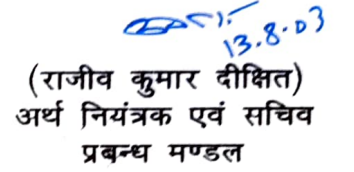 13.8.03
(राजीव कुमार दीक्षित)
अर्थ नियंत्रक एवं सचिव
प्रबन्ध मण्डल